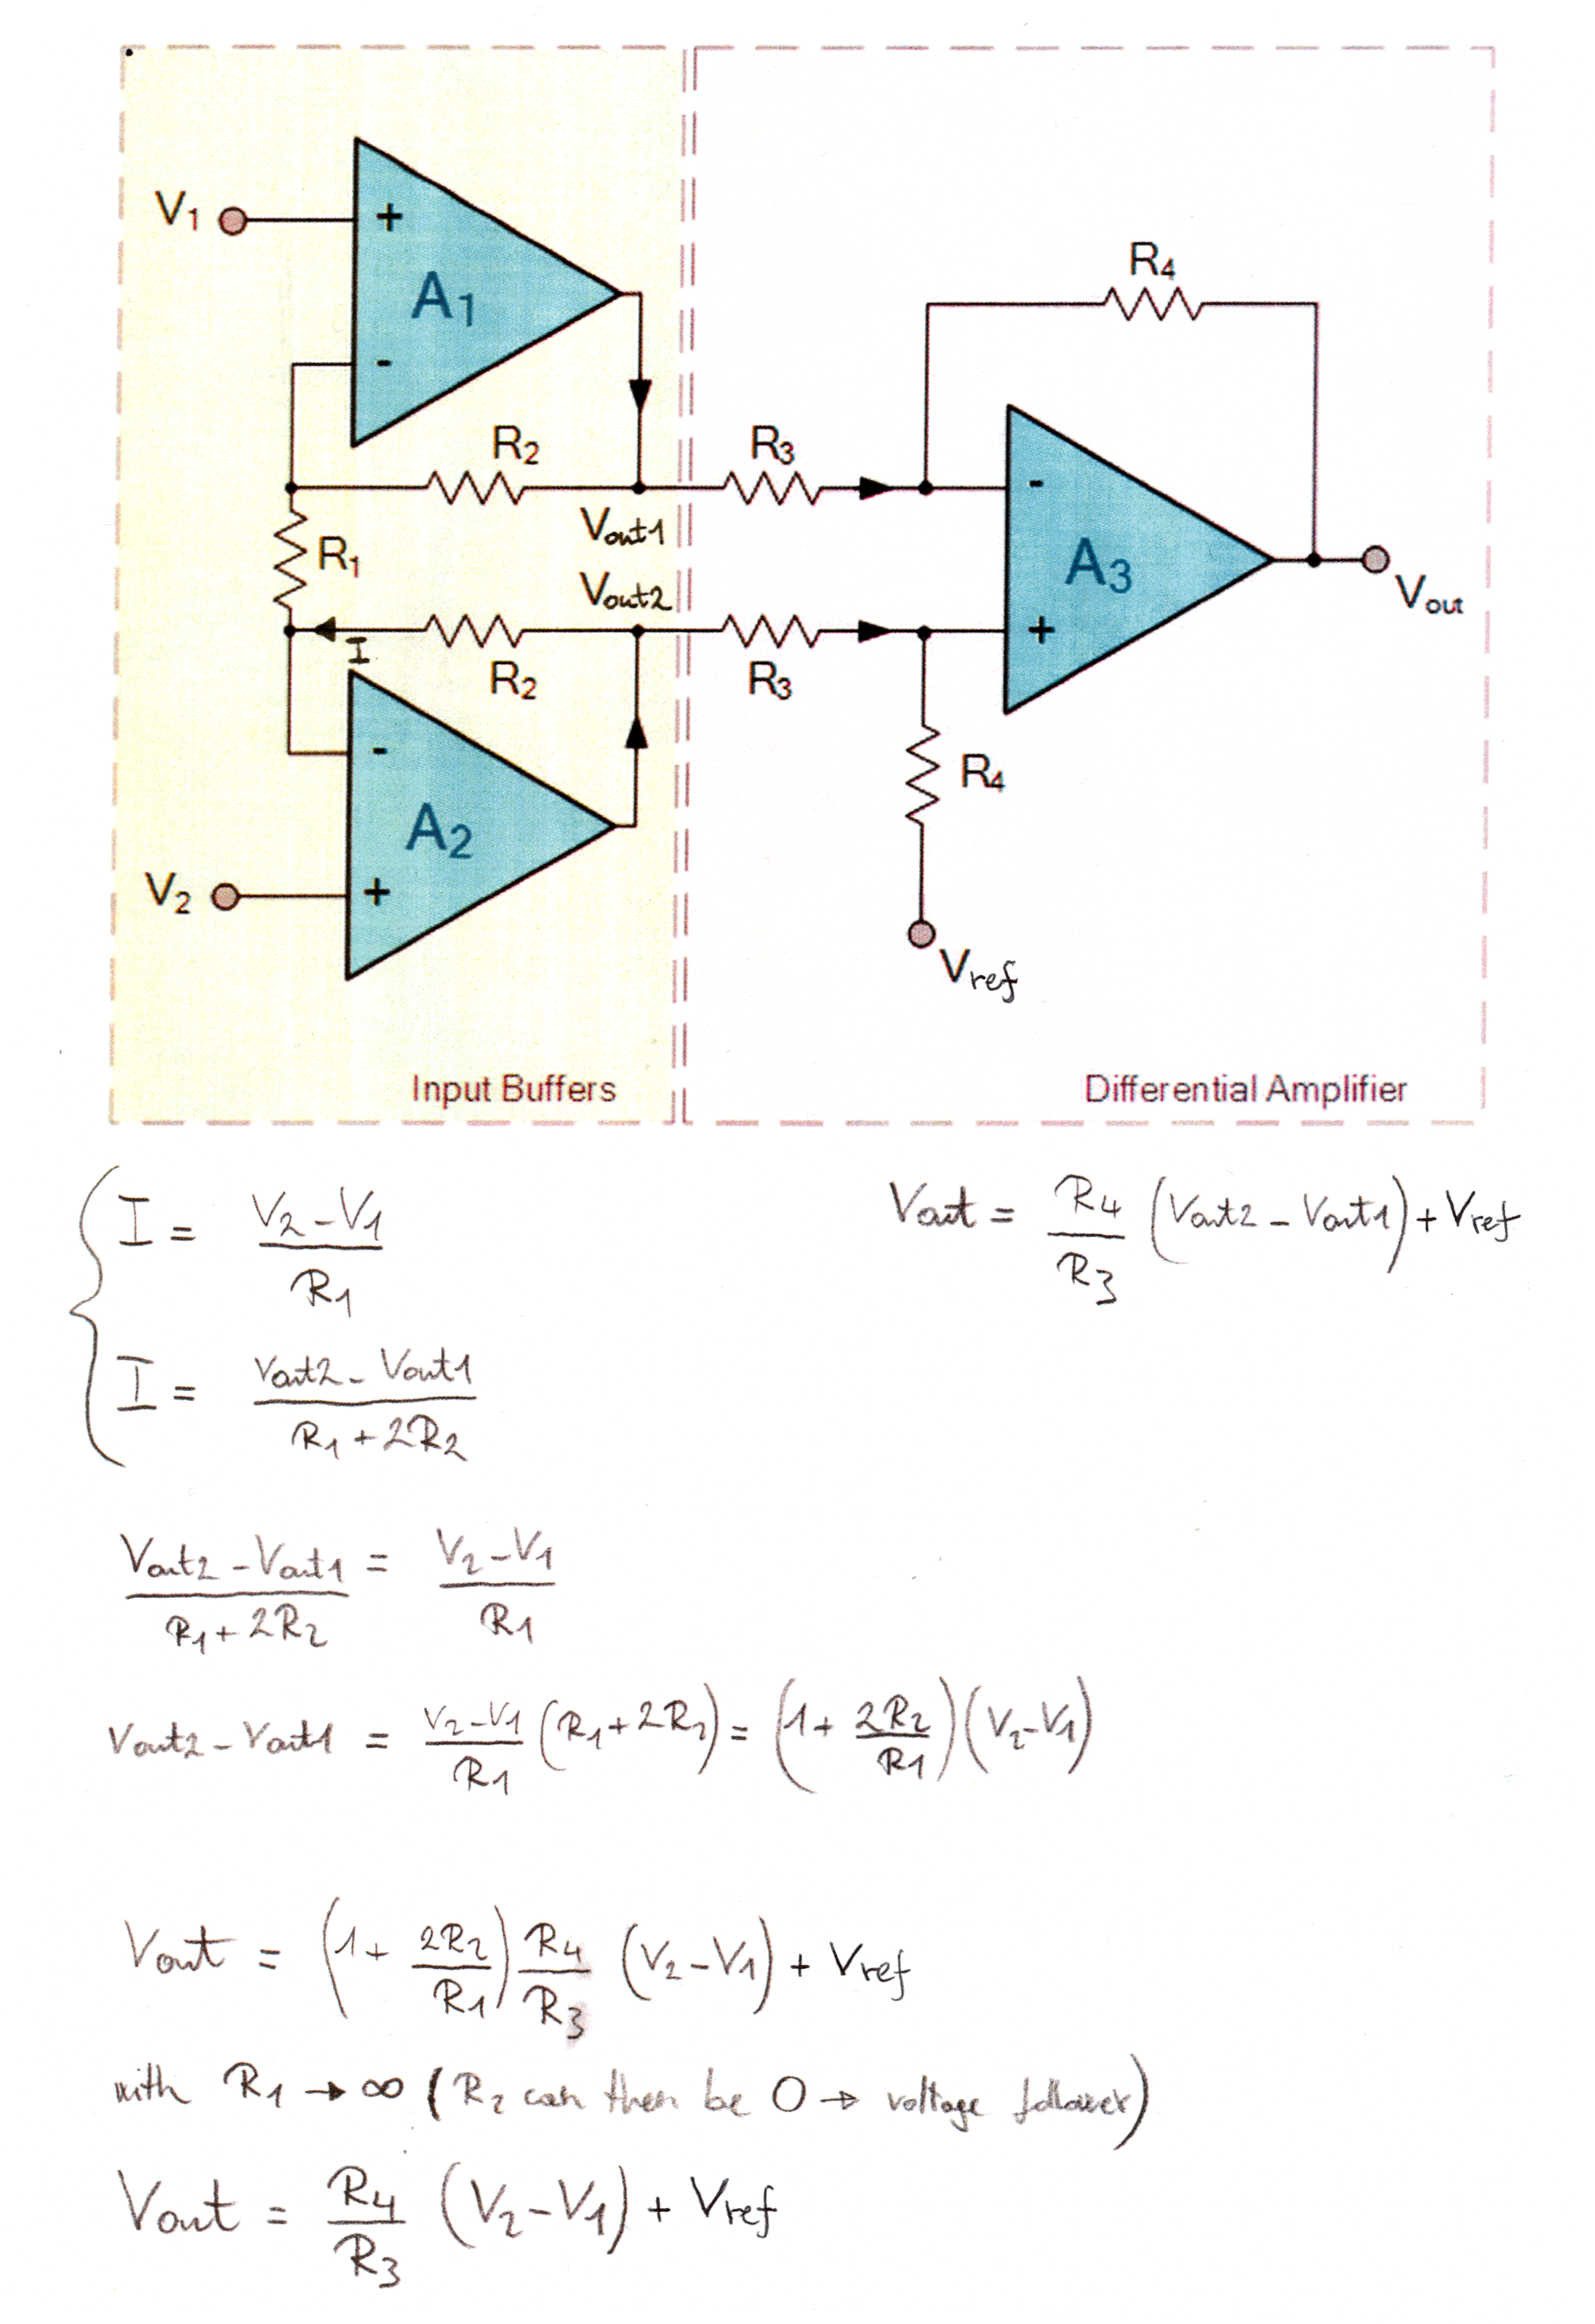 V1
+
A1
-
R2
R3
R4
Vout1
R1
-
A3
Vout
Vout2
I
R2
R3
+
-
R4
A2
V2
+
Vref
Input Buffers
Differential Amplifier
I = (V2 - V1) / R1
Vout = R4/R3 (Vout2 - Vout1) + Vref
I = (Vout2 - Vout1) / (R1 + 2R2)
(Vout2 - Vout1) / (R1 + 2R2) = (V2 - V1) / R1
Vout2 - Vout1 = (V2 - V1)/R1 (R1 + 2R2) = (1 + 2R2/R1)(V2 - V1)
Vout = (1 + 2R2/R1) R4/R3 (V2 - V1) + Vref
with R1 → ∞ (R2 can then be 0 → voltage follower)
Vout = R4/R3 (V2 - V1) + Vref